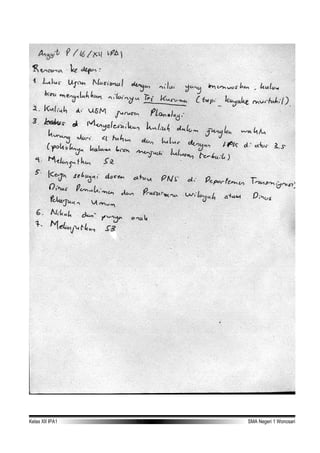 Anggit P / 16 / XII IPA1
Rencana ke depan :
1. Lulus Ujian Nasional dengan nilai yang memuaskan, kalau
bisa mengalahkan nilainya Tri Kusuma (tapi kayake mustahil).
2. Kuliah di UGM jurusan Planologi
3. Menyelesaikan kuliah dalam jangka waktu
kurang dari tahun dan lulus dengan IPK di atas 3.5
(pokoknya kalau bisa menjadi lulusan terbaik)
4. Melanjutkan S2
5. Kerja sebagai dosen atau PNS di Departemen Transmigrasi,
Dinas Pemukiman dan Prasarana Wilayah atau Dinas
Pekerjaan Umum
6. Nikah dan punya anak
7. Melanjutkan S3
Kelas XII IPA1 SMA Negeri 1 Wonosari